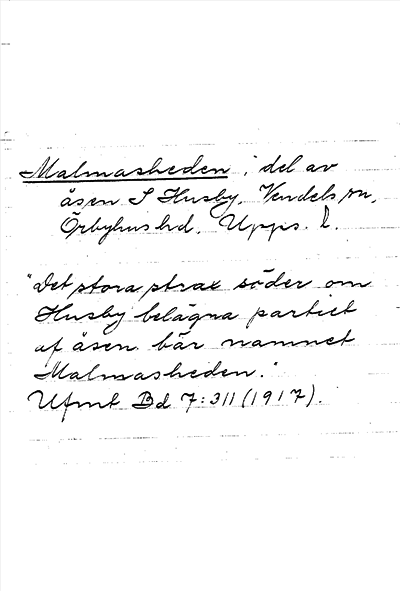 Malmasheden; del av
åsen S Husby, Vendels sn,
Örbyhus hd, Upps. l.
"Det stora strax söder om
Husby belägna partiet
af åsen bär namnet
Malmasheden."
Ufmt Bd 7:311 (1917).